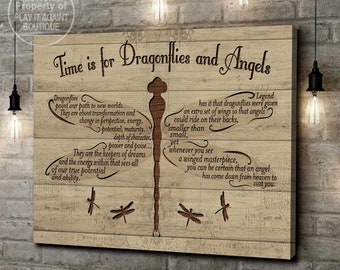 Property of
PLAY IT AGAIN!
BOUTIQUE
Time is for Dragonflies and Angels
Dragonflies
point our path to new worlds.
They are about transformation and
change in perspective, energy,
potential, maturity,
depth of character,
power and poise.
They are the keepers of dreams
and the energy within that sees all
of our true potential
and ability.
Legend
has it that dragonflies were given
an extra set of wings so that angels
could ride on their backs.
Smaller than
small,
yet
whenever you see
a winged masterpiece,
you can be certain that an angel
has come down from heaven to
visit you.